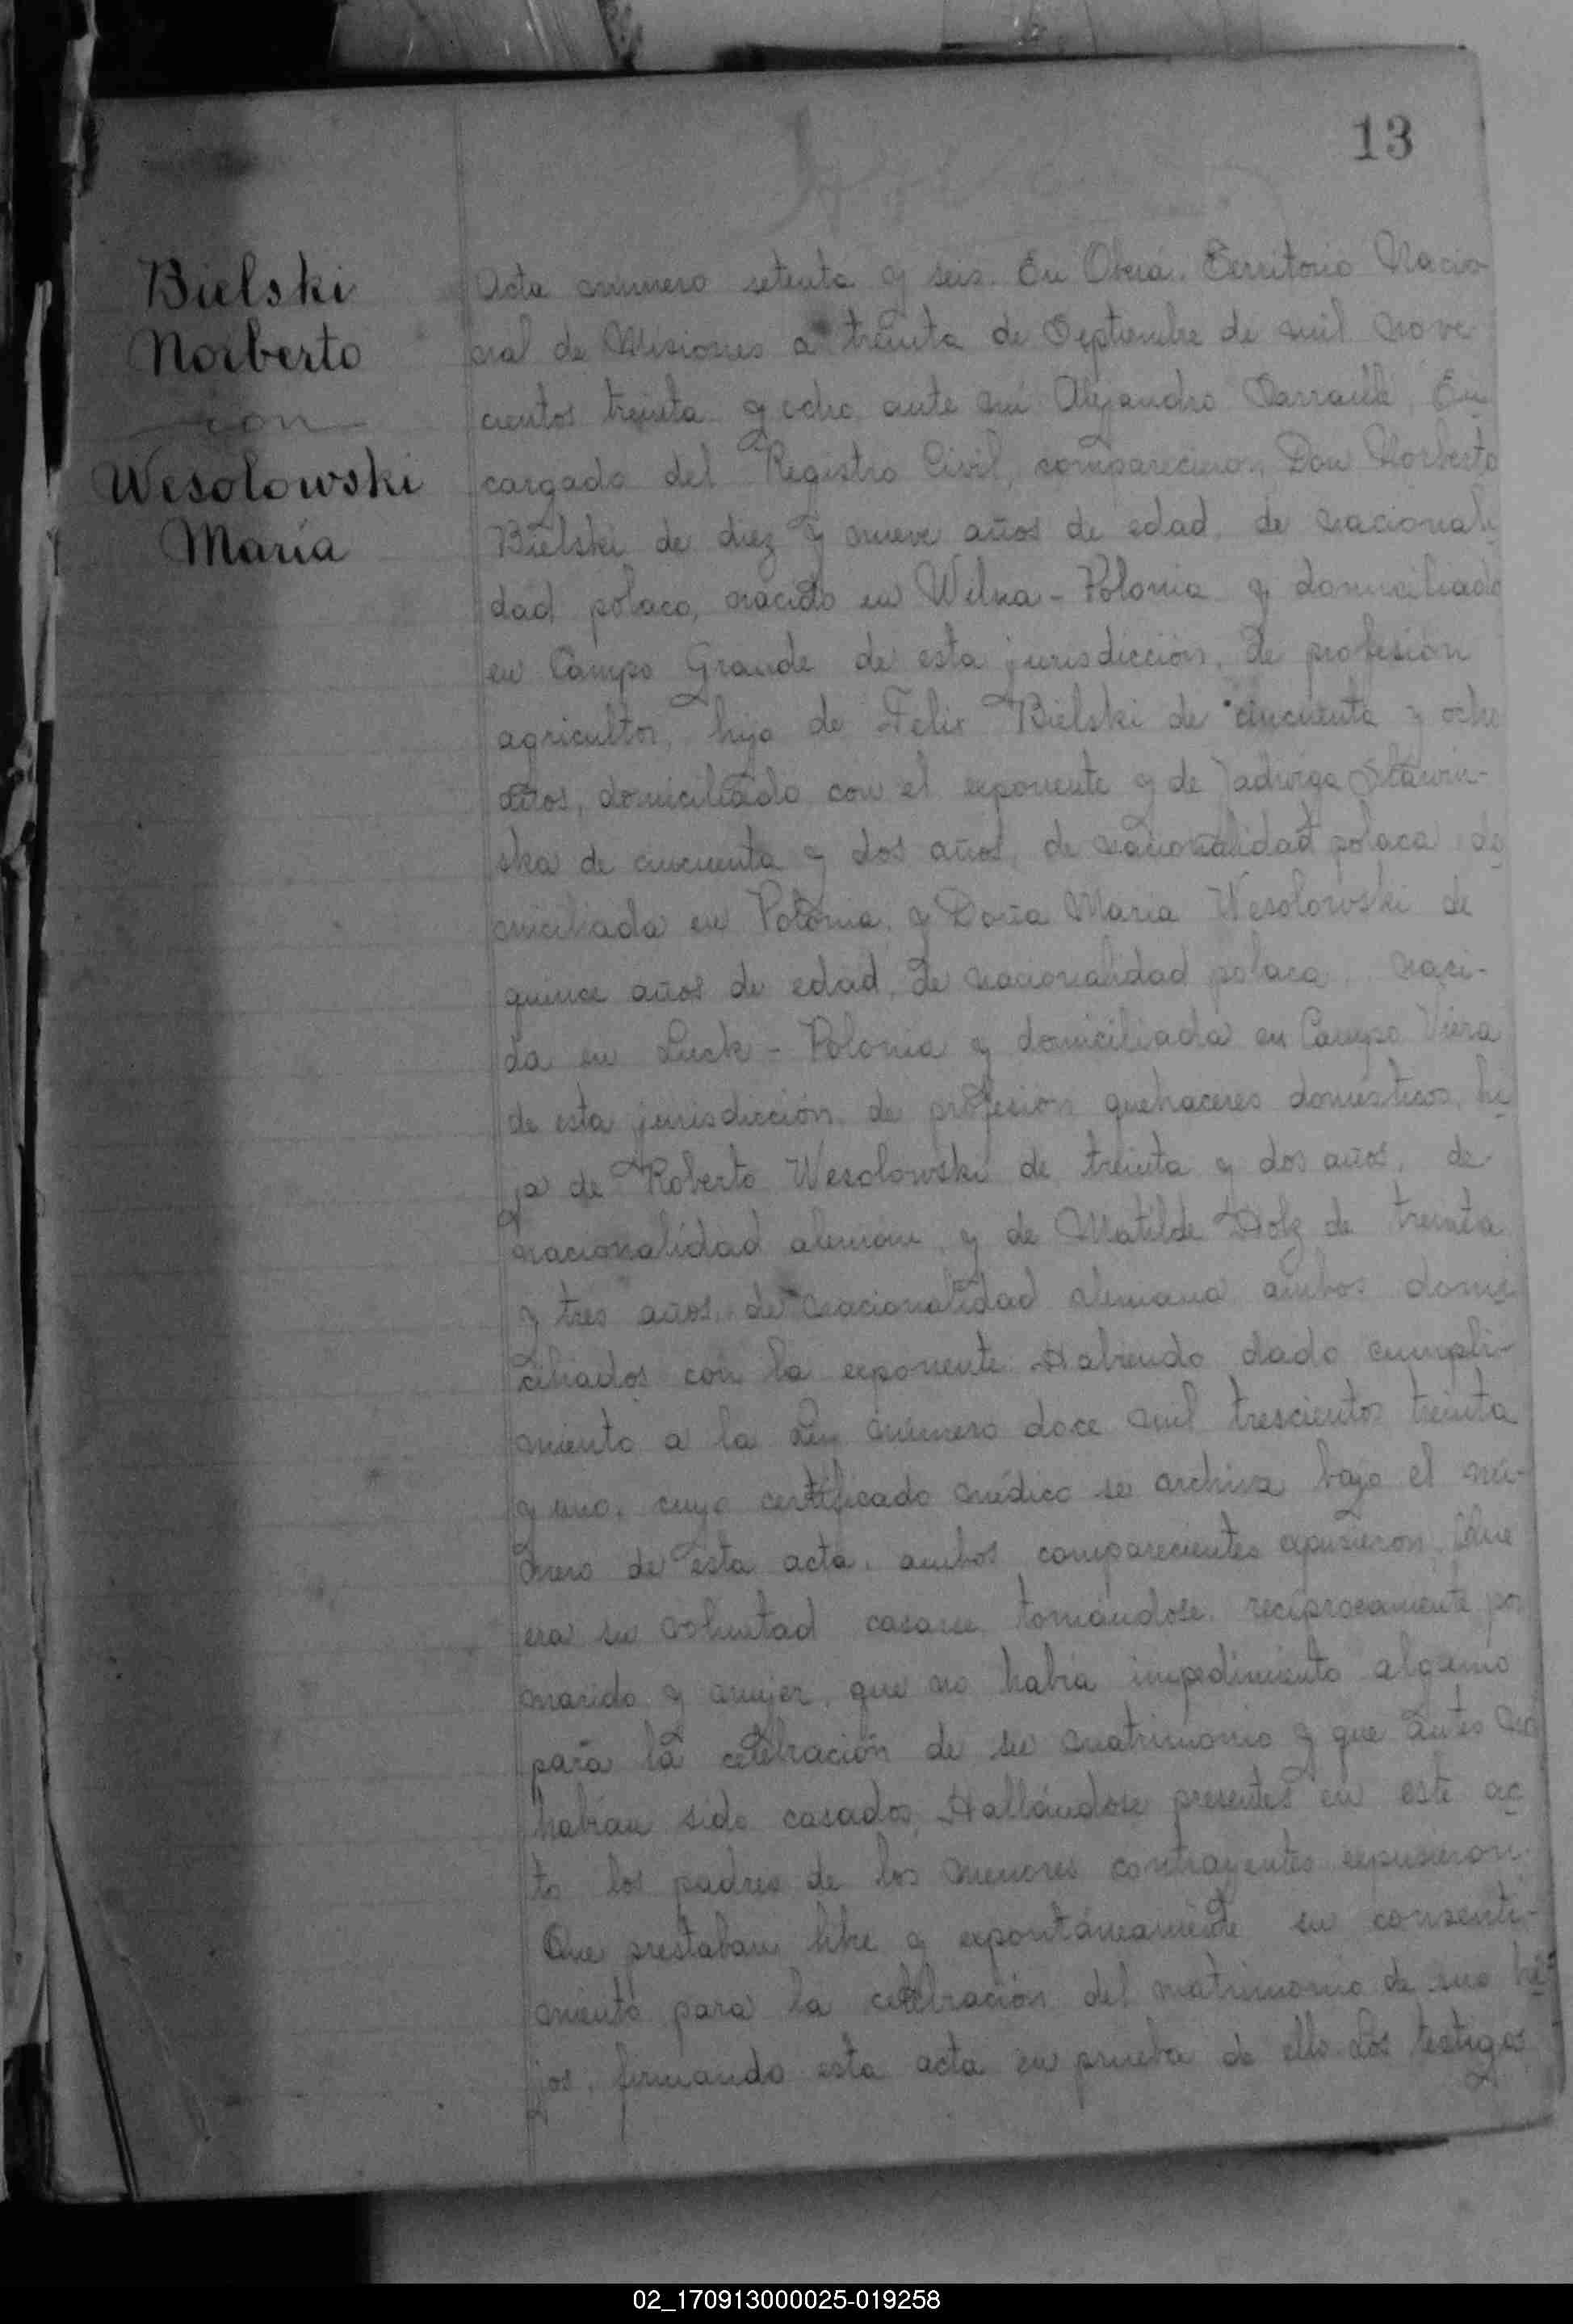 13
Bielski
Norberto
con
Wesolowski
María
Acta número setenta y seis. En Oberá. Territorio Nacio
nal de Misiones a treinta de Septiembre de mil nove
cientos treinta y ocho, ante mí Alejandro En
cargado del Registro Civil, comparecieron, Don Norberto
Bielski de diez y nueve años de edad, de nacionali
dad polaco, nacido en Wilna - Polonia y domiciliado
en Campo Grande de esta jurisdicción, de profesión
agricultor, hijo de Felix Bielski de cincuenta y ocho
años, domiciliado con el exponente y de Jadwiga Stawin-
ska de cincuenta y dos años, de nacionalidad polaca do
miciliada en Polonia, y Doña María Wesolowski de
quince años de edad, de nacionalidad polaca, naci-
da en Luck - Polonia y domiciliada en Campo Viera
de esta jurisdicción, de profesión quehaceres domésticos, hi
ja de Roberto Wesolowski de treinta y dos años, de
nacionalidad alemán, y de Matilde Holz de treinta
y tres años, de nacionalidad alemana ambos domi
ciliados con la exponente. Habiendo dado cumpli-
miento a la Ley número doce mil trescientos treinta
y uno, cuyo certificado médico se archiva bajo el nú-
mero de esta acta, ambos comparecientes expusieron, Que
era su voluntad casarse, tomándose, recíprocamente por
marido y mujer, que no había impedimento alguno
para la celebración de su matrimonio y que antes no
habían sido casados, Hallándose presentes en este ac
to los padres de los menores contrayentes expusieron:
Que prestaban libre y expontáneamente su consenti-
miento para la celebración del matrimonio de sus hi
jos, firmando esta acta en prueba de ello. Los testigos
02_170913000025-019258